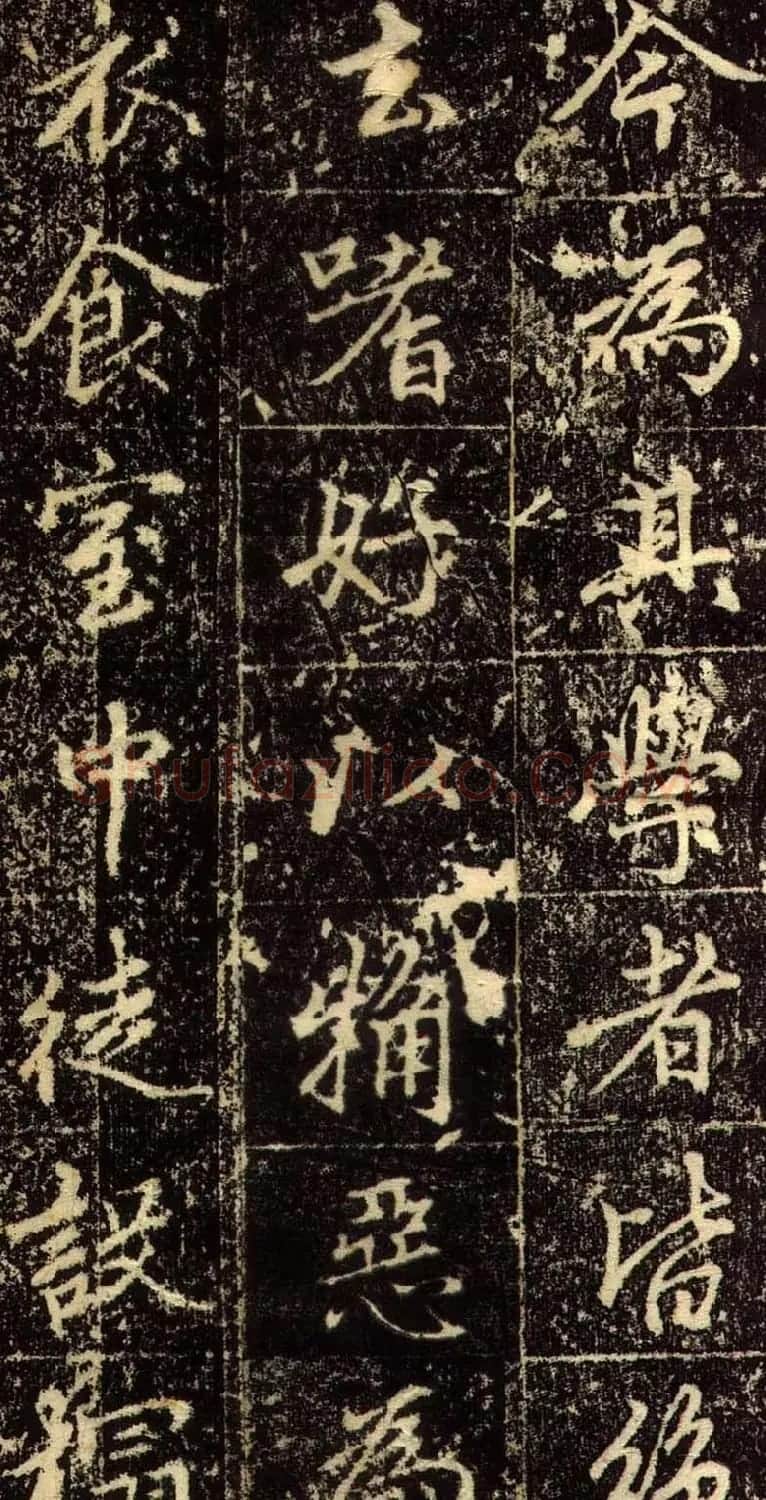 今為其學者皆絕
去嗜好以觕惡為
衣食室中徒設榻
Shufaziliao.COM